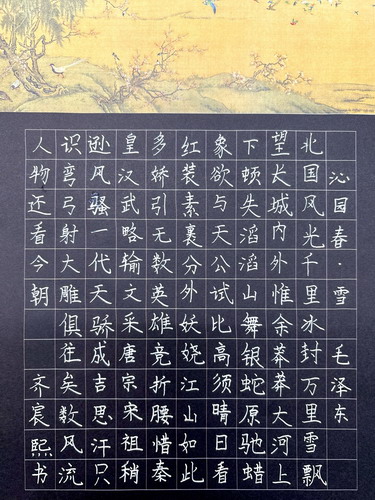 沁园春·雪 毛泽东
北国风光千里冰封万里雪飘
望长城内外惟余莽莽大河上
下顿失滔滔山舞银蛇原驰蜡
象欲与天公试比高须晴日看
红装素裹分外妖娆江山如此
多娇引无数英雄竞折腰惜秦
皇汉武略输文采唐宗宋祖稍
逊风骚一代天骄成吉思汗只
识弯弓射大雕俱往矣数风流
人物还看今朝 齐宸熙书